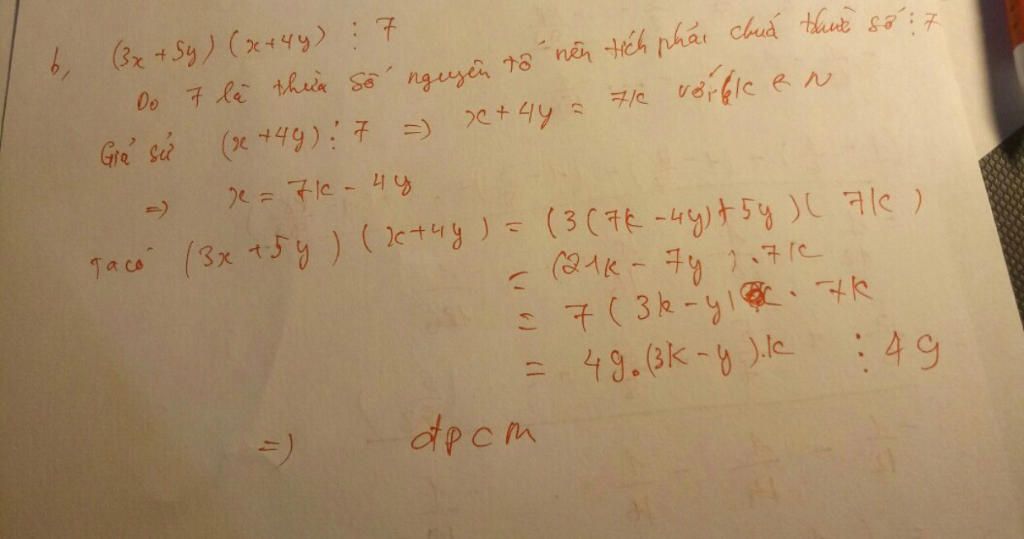 b, (3x+5y) (x+4y) ⋮ 7
Do 7 là thừa số nguyên tố nên tích phải chứa thừa số ⋮ 7
Giả sử (x+4y) ⋮ 7 => x+4y = 7k với k ∈ N
=> x = 7k - 4y
Ta có (3x+5y) (x+4y) = (3(7k-4y)+5y)(7k)
= (21k - 7y).7k
= 7(3k-y) . 7k
= 49.(3k-y).k ⋮ 49
=> đpcm